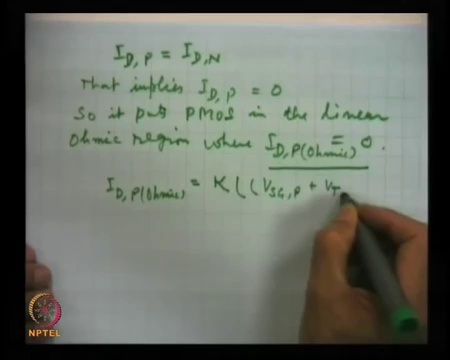 I_D,P = I_D,N
That implies I_D,P = 0
So it puts PMOS in the linear
Ohmic region where I_D,P(Ohmic) = 0.
I_D,P(Ohmic) = K[((V_SG,P + V_T
NPTEL